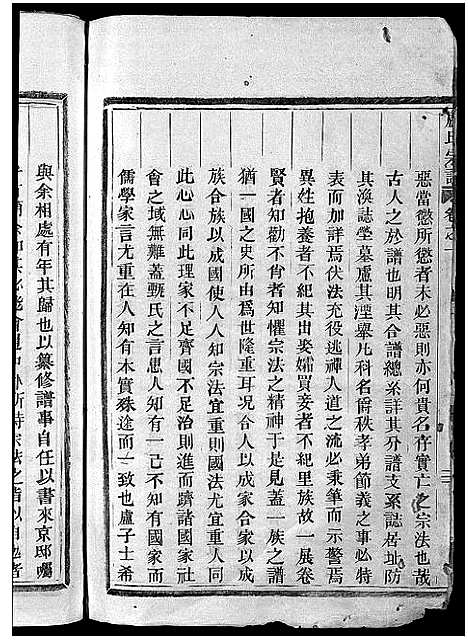 盧氏宗譜 卷之
惡當懲所懲者未必惡則亦何貴名存實亡之宗法也哉
古人之於譜也明其合譜總系詳其分譜支系誌居址防
其渙誌塋墓慮其湮舉凡科名爵秩孝弟節義之事必特
表而加詳焉伏法充役逃禪人道之流必秉筆而示警焉
異姓抱養者不紀其出娶孀買妾者不紀里族故一展卷
賢者知勸不肖者知懼宗法之精神于是見蓋一族之譜
猶一國之史所由爲世隆重耳况合人以成家合家以成
族合族以成國使人人知宗法宜重則國法尤宜重人同
此心心同此理家不足齊國不足治則進而躋諸國家社
會之域無難蓋甄氏之言患人知有一己不知有國家而
儒學家言尤重在人知有本實殊途而一致也盧子士希
與余相處有年其歸也以纂修譜事自任以書來京邸囑